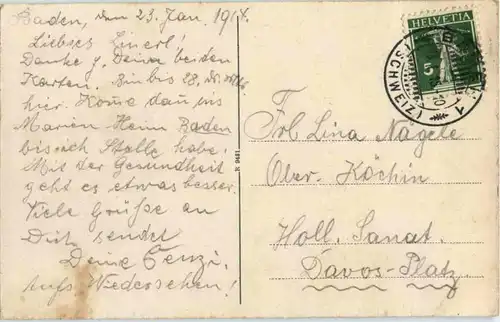 Baden, den 23. Jan. 1914.
Liebes Linerl!
Danke f. Deine beiden
Karten. Bin bis 28. ds.
hier. Komme dann bis
Marien Heim Baden
bis ich Stelle habe.
Mit der Gesundheit
geht es etwas besser.
Viele Grüße an
Dich sendet
Deine Cenzi.
Aufs Wiedersehen!
R 9481
HELVETIA
5
(SCHWEIZ) 1
Frl Lina Nägele
Ober. Köchin
Holl. Sanat.
Davos-Platz.